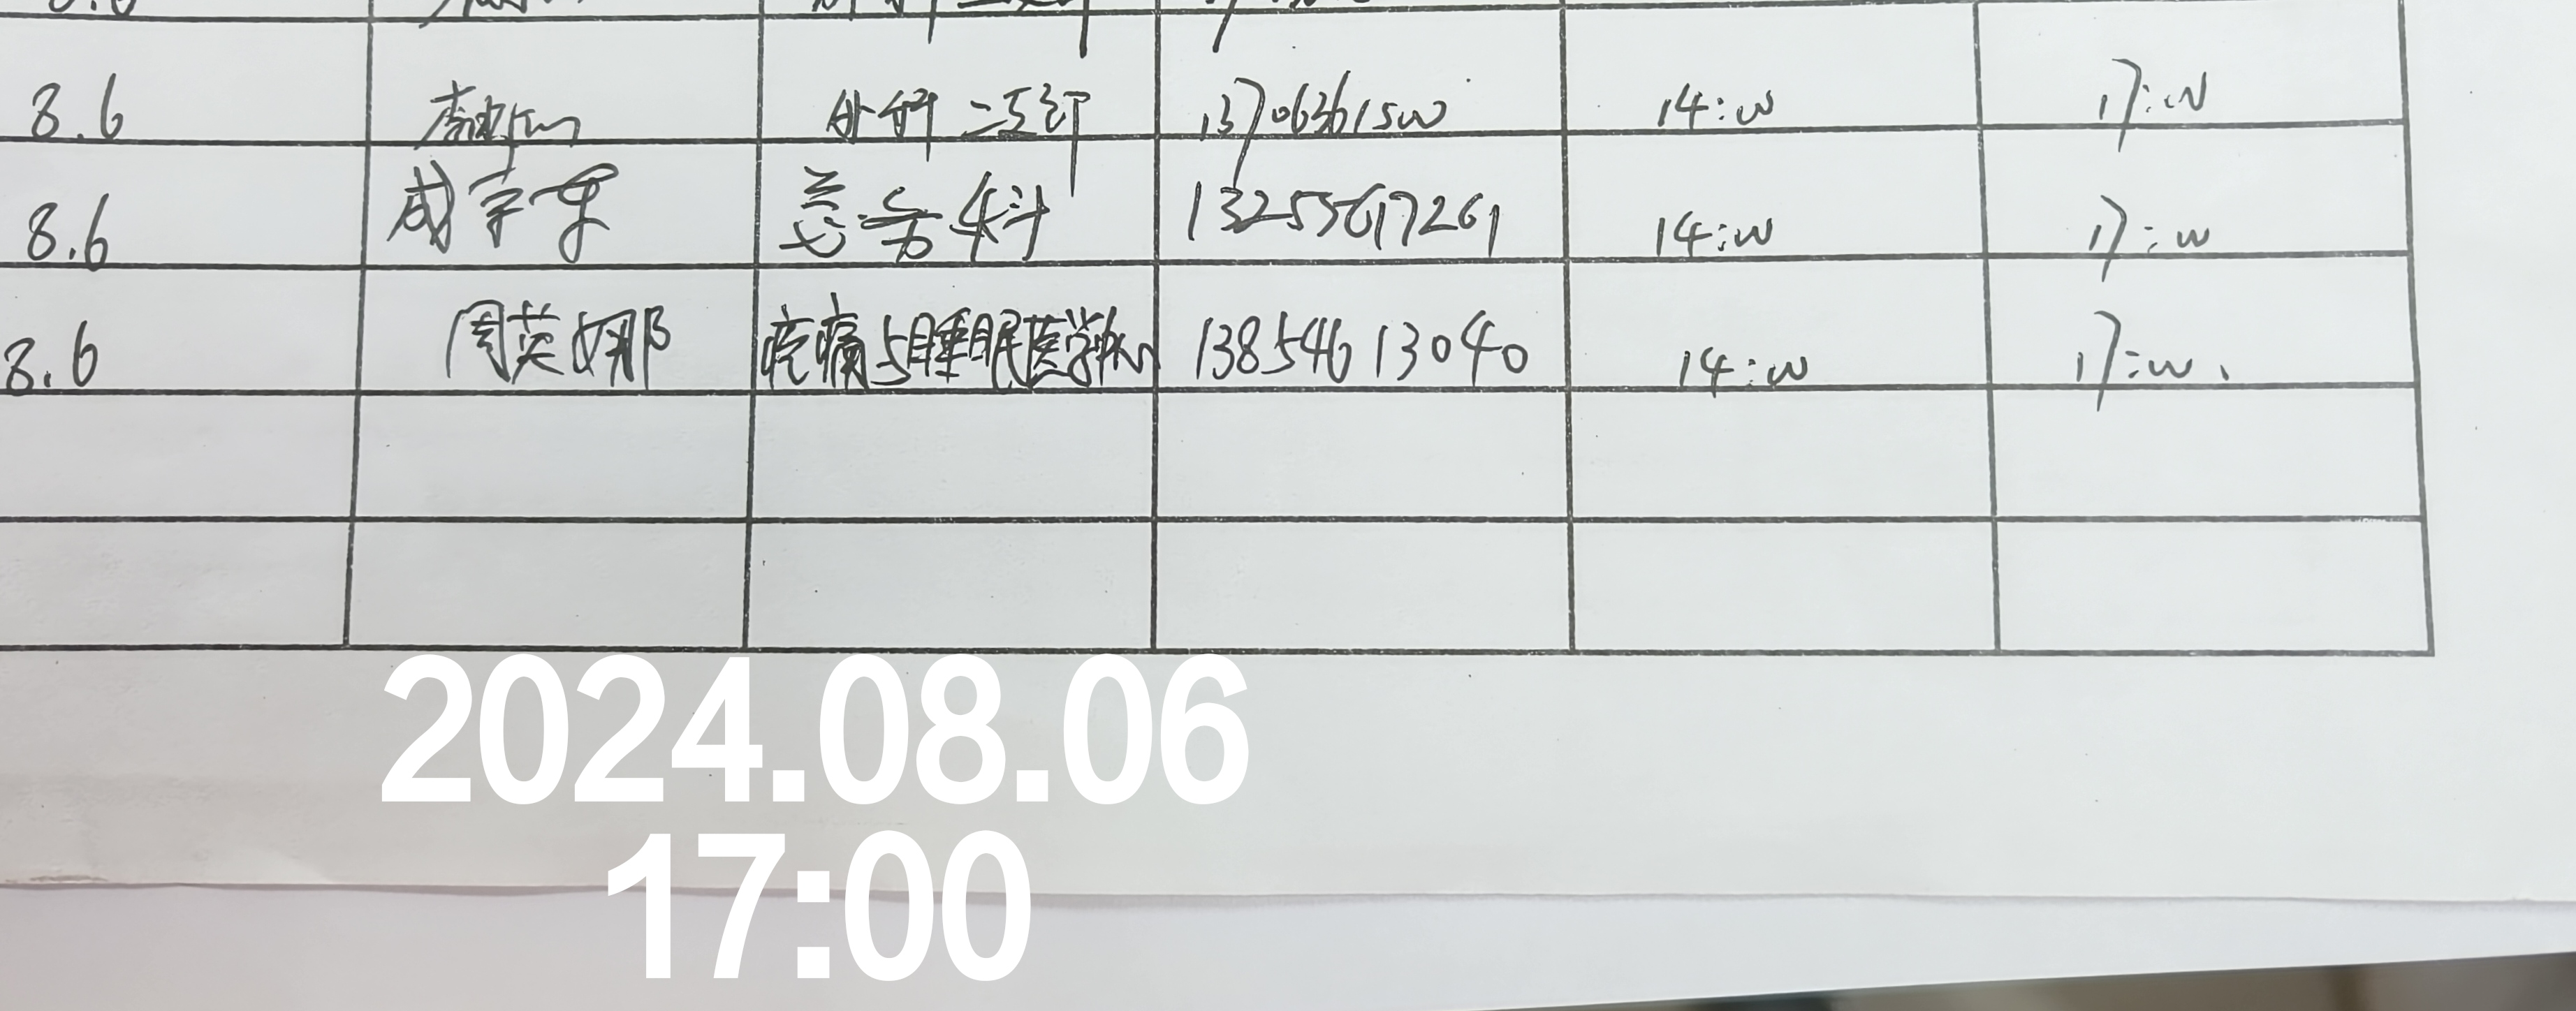 8.6 外科二 13706361500 14:00 17:00
8.6 咸宇 科 13255617261 14:00 17:00
8.6 周英娜 疼痛与睡眠医学科 13854613040 14:00 17:00
2024.08.06
17:00